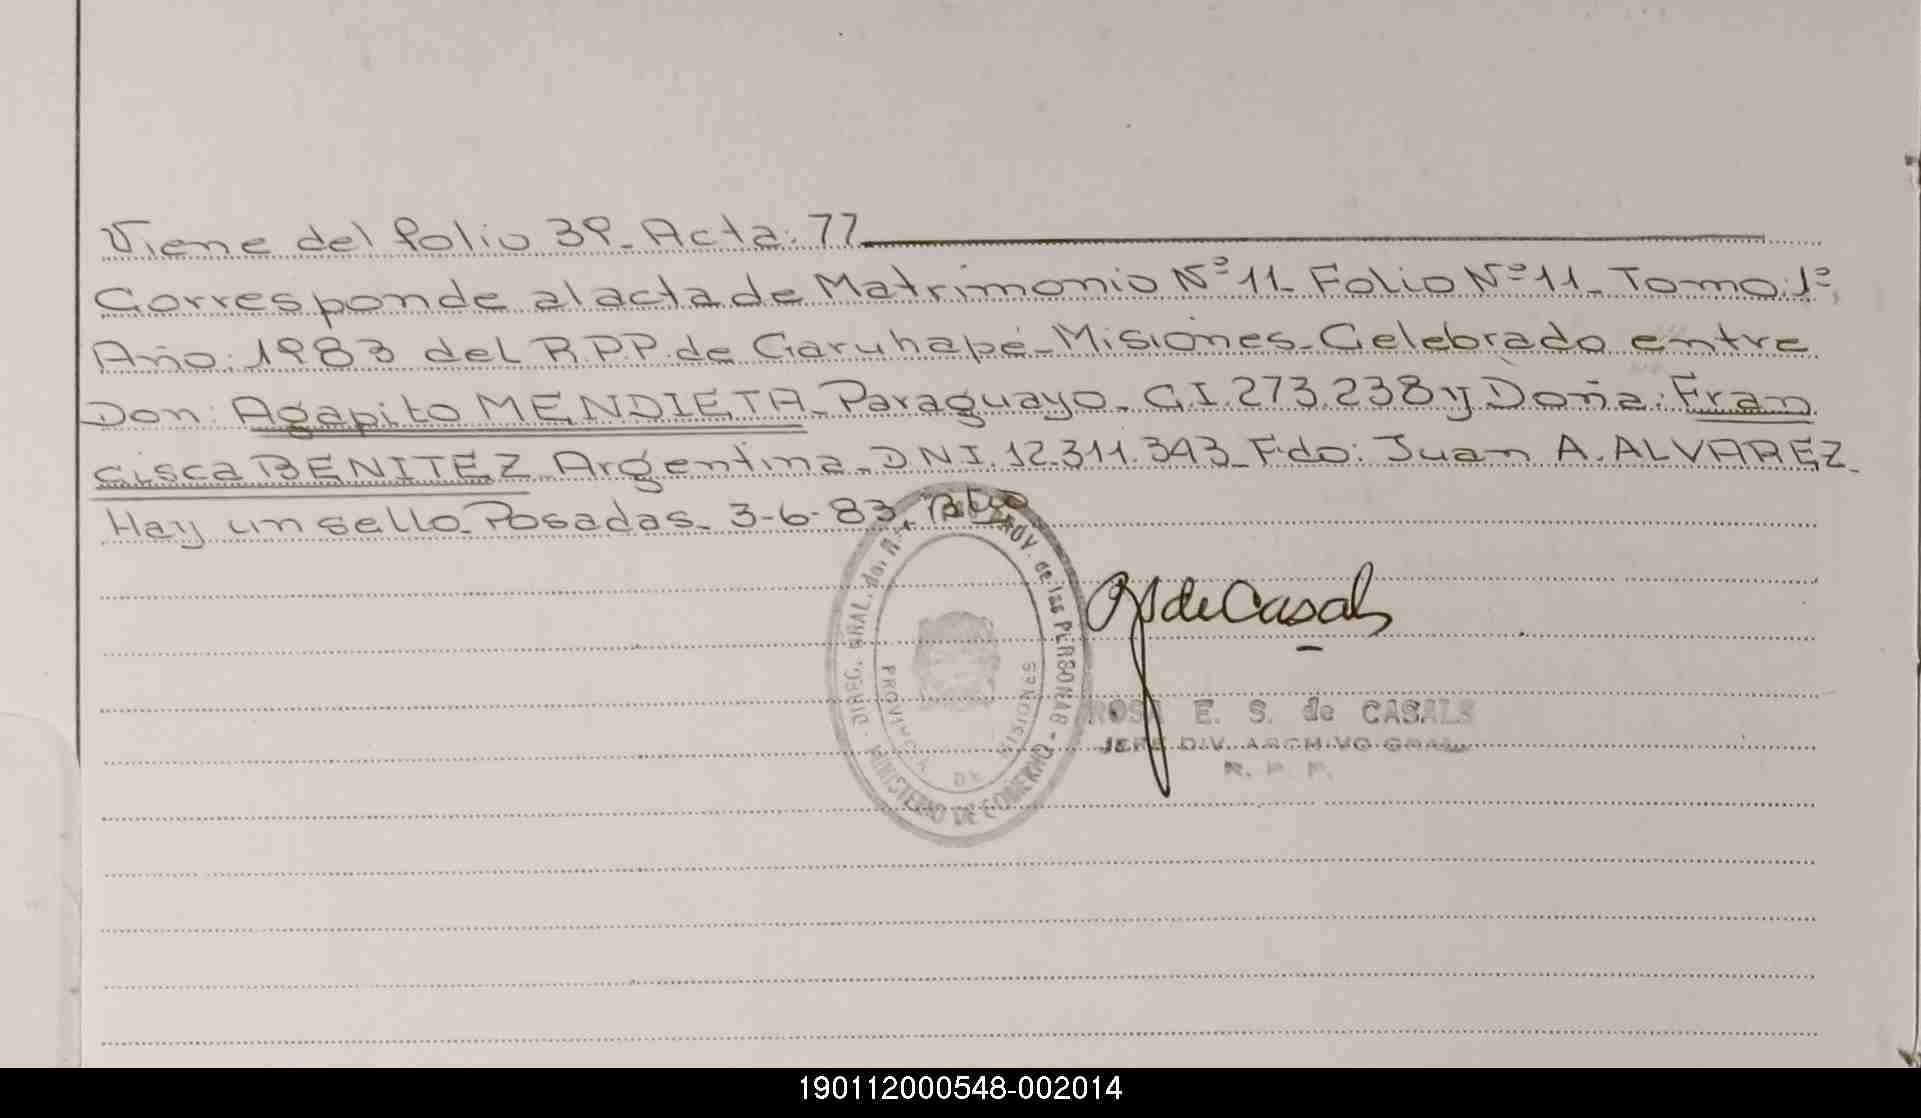 Viene del folio 39_ Acta: 77
Corresponde al acta de Matrimonio Nº 11_ Folio Nº 11_ Tomo: 1º,
Año: 1983 del R.P.P. de Garuhapé_ Misiones_ Celebrado entre
Don: Agapito MENDIETA_ Paraguayo_ C.I. 273.238 y Doña: Fran
cisca BENITEZ_ Argentina_ DNI. 12.311.343_ Fdo: Juan A. ALVAREZ_
Hay un sello_ Posadas_ 3-6-83
DIREC. GRAL. del de las PERSONAS - MINISTERIO DE GOBIERNO -
PROVINCIA DE MISIONES
de Casals
ROSA E. S. de CASALS
JEFE DIV. ARCHIVO GRAL.
R. P. P.
190112000548-002014